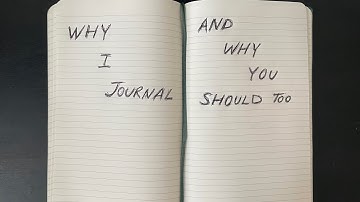 WHY
I
JOURNAL
AND
WHY
YOU
SHOULD TOO